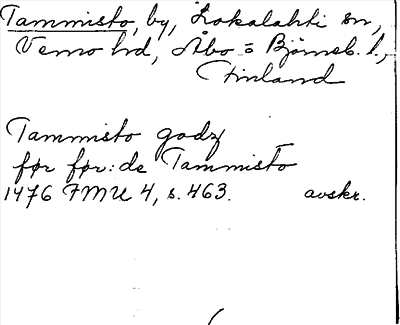 Tammisto, by, Lokalahti sn,
Vemo hd, Åbo o Björneb. l.,
Finland
Tammisto godz
før før: de Tammisto
1476 FMU 4, s. 463. avskr.